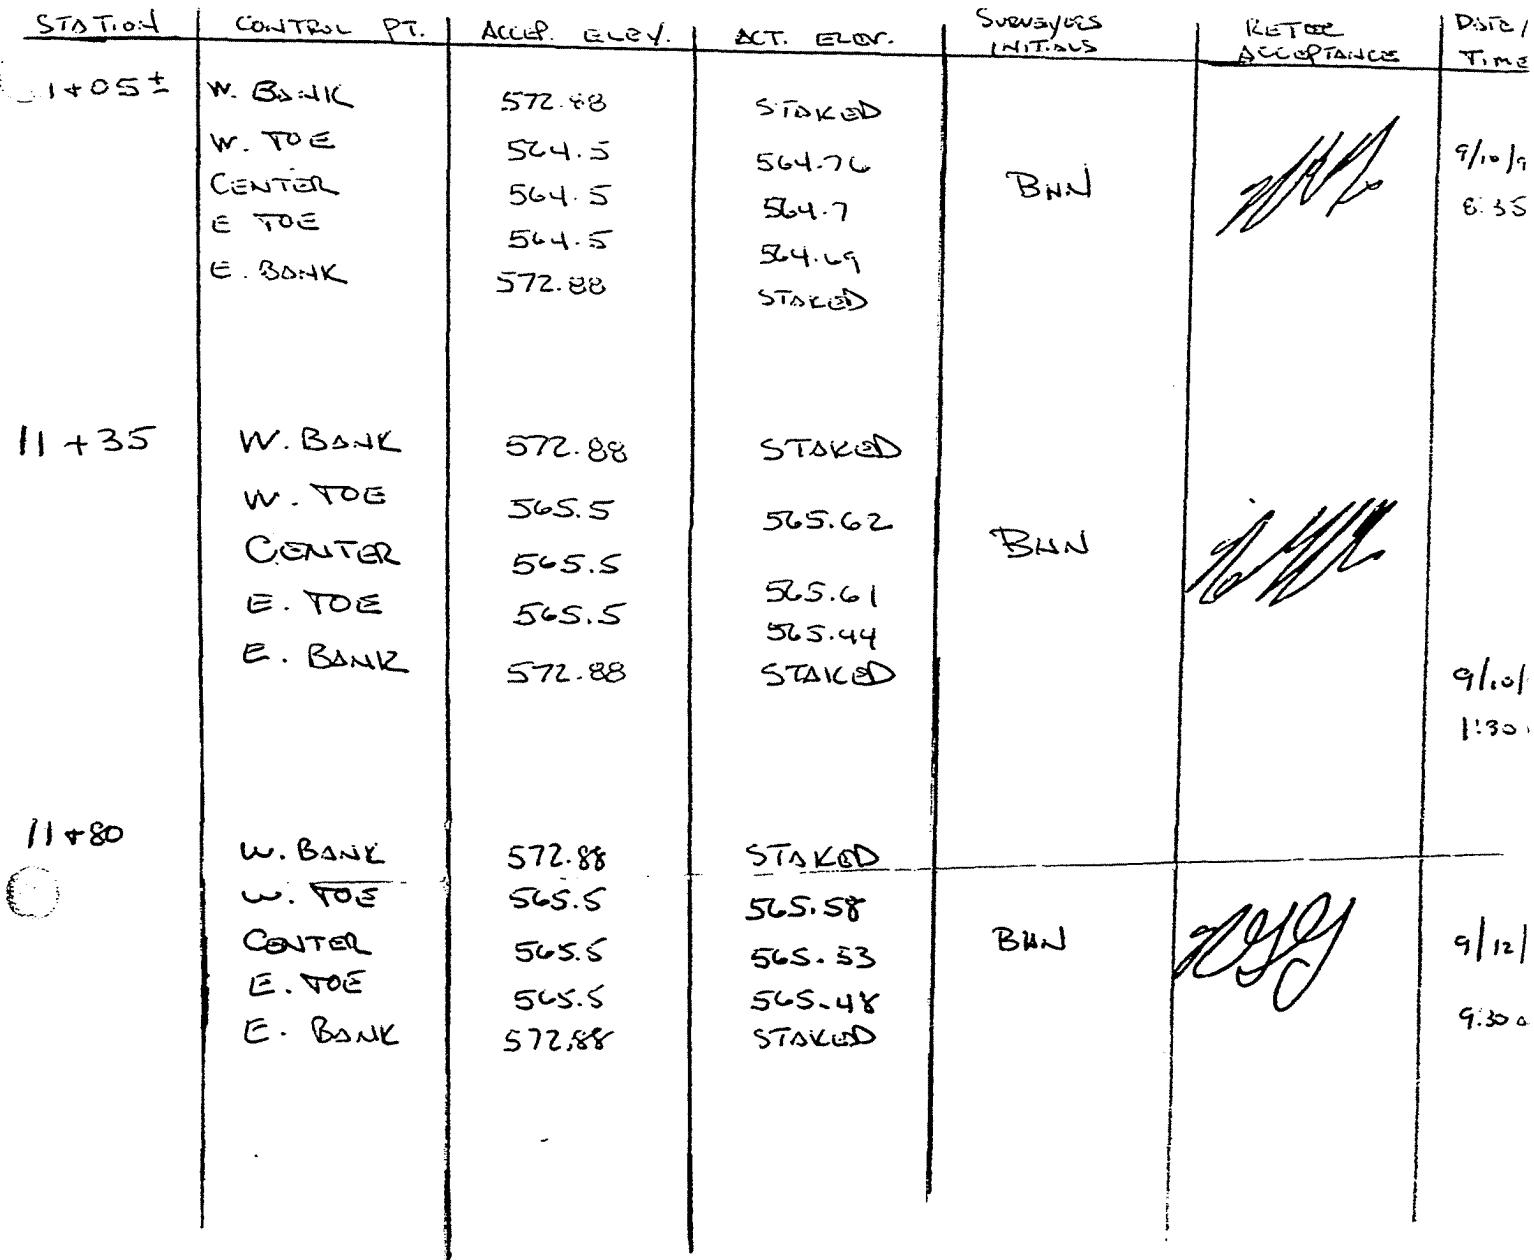 STATION CONTROL PT. ACCEP. ELEV. ACT. ELEV. SURVEYERS INITIALS ACCEPTANCE DATE / TIME
1+05± W. BANK 572.88 STAKED
W. TOE 564.5 564.76 9/10/9
CENTER 564.5 564.7 BHN 8:35
E TOE 564.5 564.69
E. BANK 572.88 STAKED
11+35 W. BANK 572.88 STAKED
W. TOE 565.5 565.62
CENTER 565.5 565.61 BHN
E. TOE 565.5 565.44
E. BANK 572.88 STAKED 9/10/
1:30
11+80 W. BANK 572.88 STAKED
W. TOE 565.5 565.58
CENTER 565.5 565.53 BHN 9/12/
E. TOE 565.5 565.48
E. BANK 572.88 STAKED 9:30 a